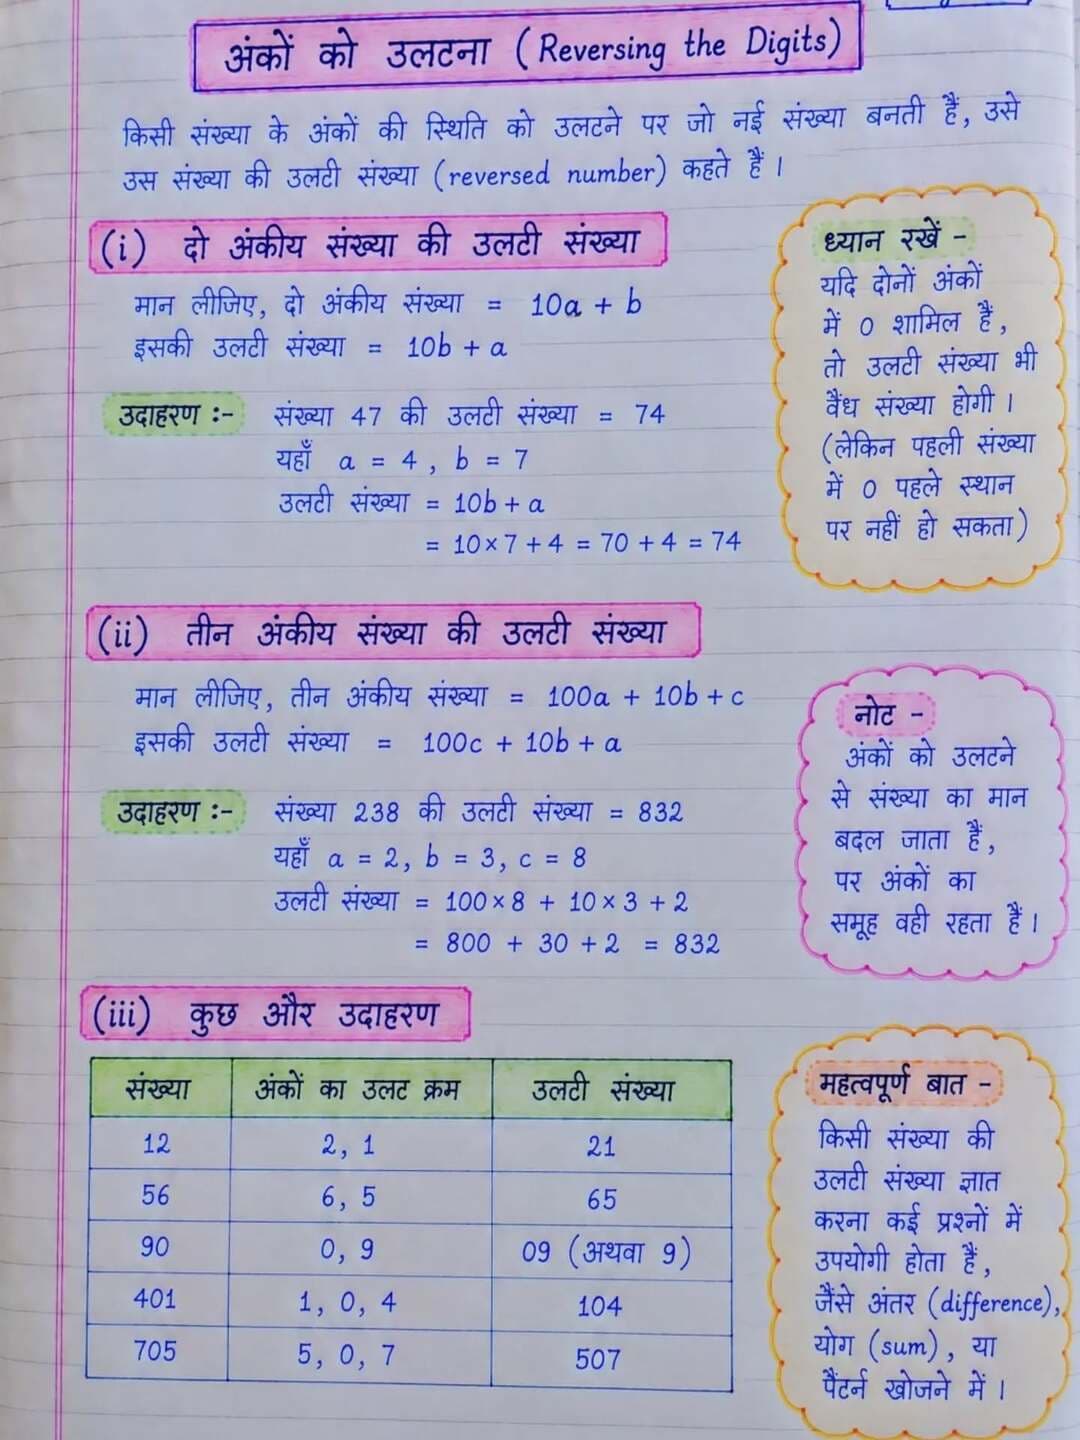 अंकों को उलटना (Reversing the Digits)
किसी संख्या के अंकों की स्थिति को उलटने पर जो नई संख्या बनती है, उसे
उस संख्या की उलटी संख्या (reversed number) कहते हैं।
(i) दो अंकीय संख्या की उलटी संख्या
मान लीजिए, दो अंकीय संख्या = 10a + b
इसकी उलटी संख्या = 10b + a
उदाहरण :- संख्या 47 की उलटी संख्या = 74
यहाँ a = 4, b = 7
उलटी संख्या = 10b + a
= 10×7 + 4 = 70 + 4 = 74
ध्यान रखें -
यदि दोनों अंकों
में 0 शामिल हैं,
तो उलटी संख्या भी
वैध संख्या होगी।
(लेकिन पहली संख्या
में 0 पहले स्थान
पर नहीं हो सकता)
(ii) तीन अंकीय संख्या की उलटी संख्या
मान लीजिए, तीन अंकीय संख्या = 100a + 10b + c
इसकी उलटी संख्या = 100c + 10b + a
उदाहरण :- संख्या 238 की उलटी संख्या = 832
यहाँ a = 2, b = 3, c = 8
उलटी संख्या = 100×8 + 10×3 + 2
= 800 + 30 + 2 = 832
नोट -
अंकों को उलटने
से संख्या का मान
बदल जाता हैं,
पर अंकों का
समूह वही रहता हैं।
(iii) कुछ और उदाहरण
संख्या अंकों का उलट क्रम उलटी संख्या
12 2, 1 21
56 6, 5 65
90 0, 9 09 (अथवा 9)
401 1, 0, 4 104
705 5, 0, 7 507
महत्वपूर्ण बात -
किसी संख्या की
उलटी संख्या ज्ञात
करना कई प्रश्नों में
उपयोगी होता हैं,
जैंसे अंतर (difference),
योग (sum), या
पैंटर्न खोजने में।